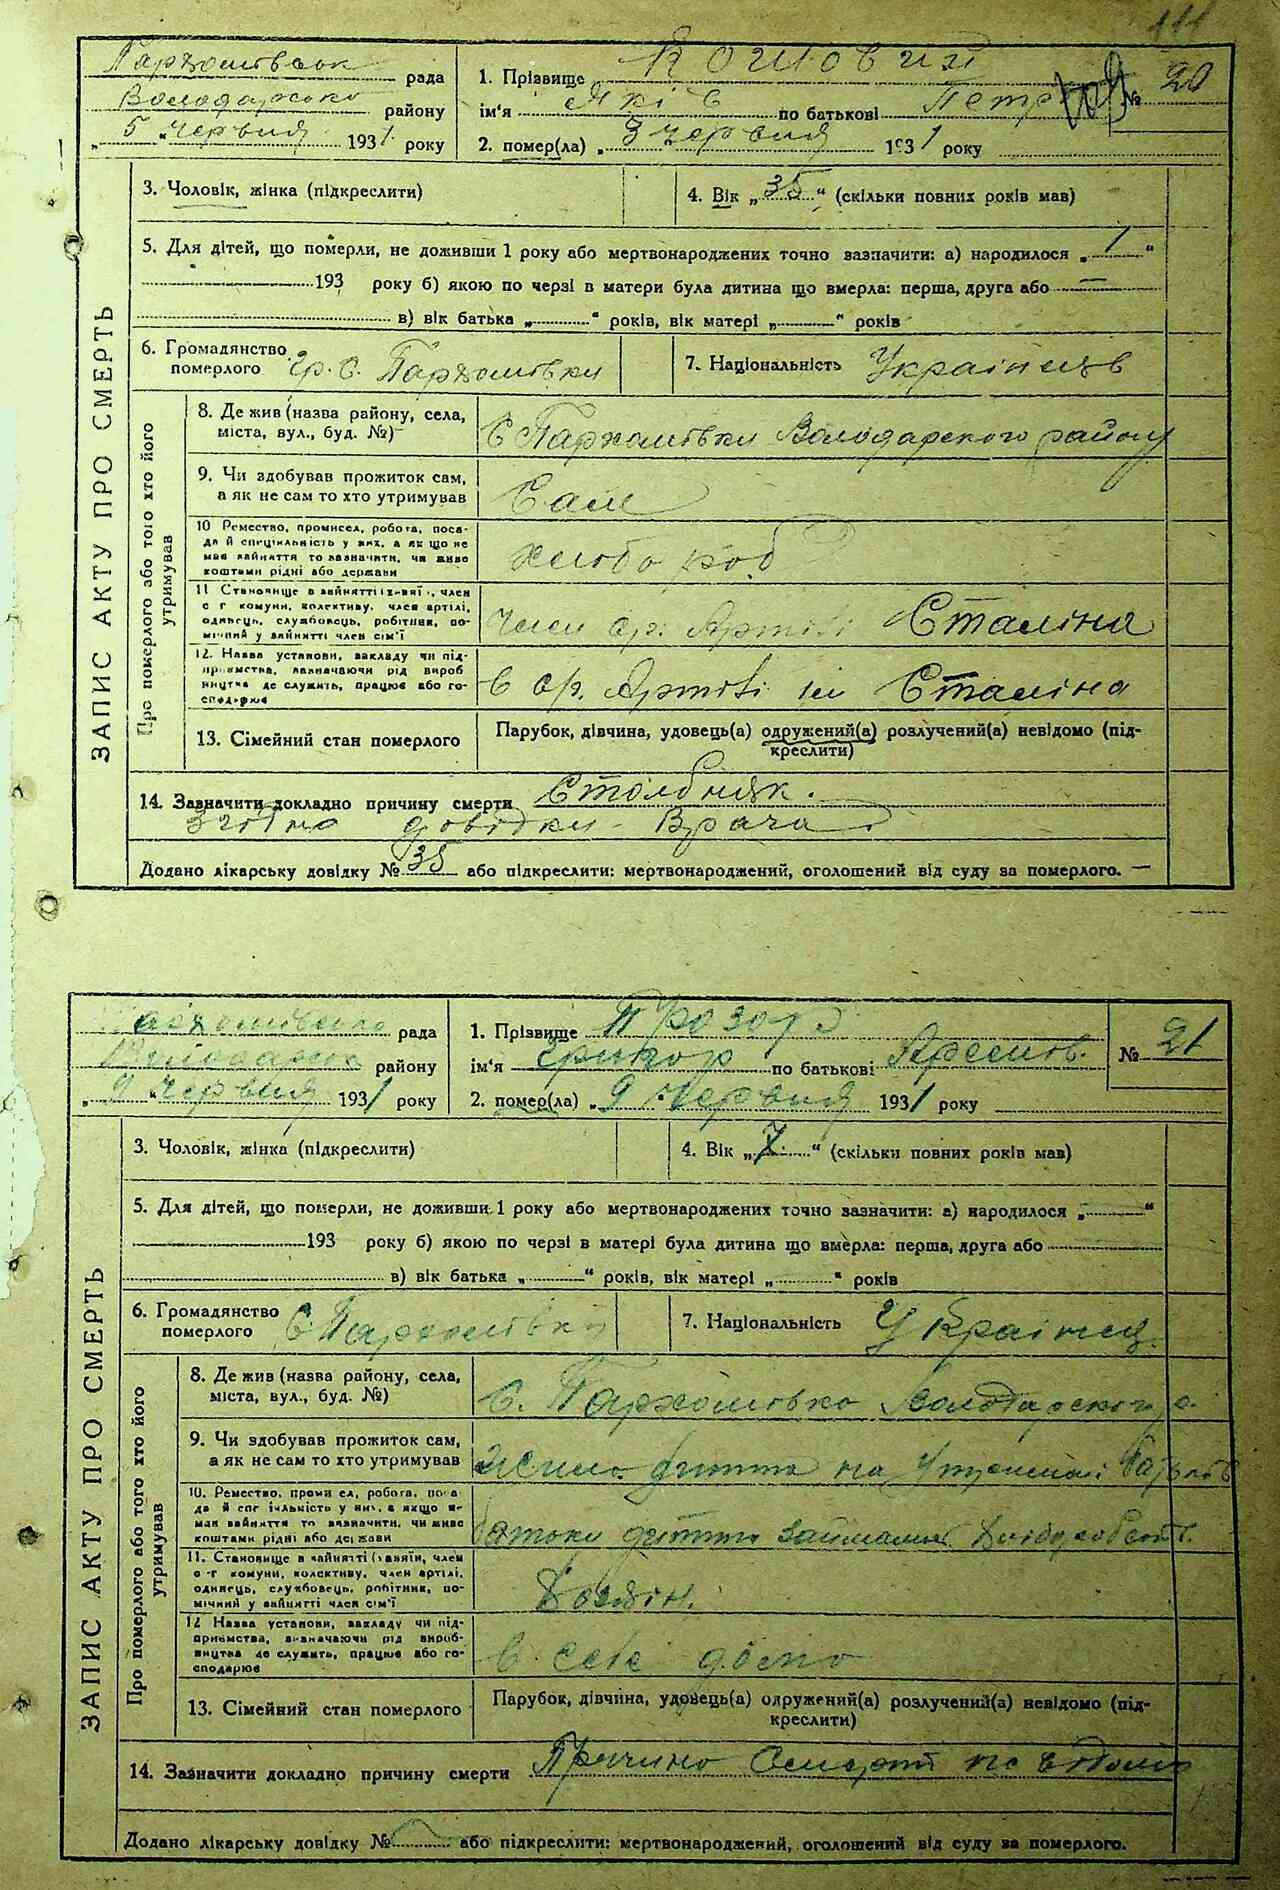 111
Пархомівська рада
Володарсько району
„ 5 “ Червня 1931 року
1. Прізвище Кошовий
ім'я Яків по батькові Петр № 20
2. помер(ла) „ 3 червня 1931 року
ЗАПИС АКТУ ПРО СМЕРТЬ
3. Чоловік, жінка (підкреслити)
4. Вік „ 35 “ (скільки повних років мав)
5. Для дітей, що померли, не доживши 1 року або мертвонароджених точно зазпачити: а) народилося „ “
193 року б) якою по черзі в матери була дитина що вмерла: перша, друга або —
в) вік батька „ “ років, вік матері „ “ років
6. Громадянство
померлого гр. С. Пархомівки
7. Національність Українець
Про померлого або того хто його утримував
8. Де жив (назва району, села,
міста, вул., буд. №)
С Пархомівки Володарского району
9. Чи здобував прожиток сам,
а як не сам то хто утримував
Сам
10 Ремество, промисел, робота, поса-
да й спеціяльність у них, а як що не
має зайняття то зазначити, чи живе
коштами рідні або держави
хлібороб
11 Становище в зайнятті (хазяїн, член
с г комуни, колективу, член артілі,
одинець, службовець, робітник, по-
мічний у зайнятті член сім'ї
Член ср. Артілі Сталіна
12. Назва установи, закладу чи під-
приємства, зазначаючи рід вироб
ництва де служить, працює або го-
сподарює
в ср. Артілі ім Сталіна
13. Сімейний стан померлого
Парубок, дівчина, удовець(а) одружений(а) розлучений(а) невідомо (під-
креслити)
14. Зазначити докладно причину смерти Столбняк.
Згідно довідки Врача
Додано лікарську довідку № 35 або підкреслити: мертвонароджений, оголошений від суду за померлого. —
Пархомівсько рада
Володарсько району
„ 9 “ Червня 1931 року
1. Прізвище Прозор
ім'я Грикор по батькові № 21
2. помер(ла) „ 9 Червня 1931 року
ЗАПИС АКТУ ПРО СМЕРТЬ
3. Чоловік, жінка (підкреслити)
4. Вік „ 7 “ (скільки повних років мав)
5. Для дітей, що померли, не доживши 1 року або мертвонароджених точно зазначити: а) народилося „ “
193 року б) якою по черзі в матері була дитина що вмерла: перша, друга або
в) вік батька „ “ років, вік матері „ “ років
6. Громадянство
померлого С. Пархомівки
7. Національність Українец
Про померлого або того хто його утримував
8. Де жив (назва району, села,
міста, вул., буд. №)
С. Пархомівко Володарского р.
9. Чи здобував прожиток сам,
а як не сам то хто утримував
дитта на Утрімані батьків
10. Ремество, проми ел, робота, поса-
да й спеціяльність у них, а якщо не-
має зайняття то зазначити, чи живе
коштами рідні або держави
батьки дитти займались
11. Становище в зайнятті (хазяїн, член
с-г комуни, колективу, член артілі,
одинець, службовець, робітник, по-
мічний у зайнятті член сім'ї
Хозяїн.
12 Назва установи, закладу чи під-
приємства, визначаючи рід вироб-
ництва де служить, працює або го-
сподарює
в селі
13. Сімейний стан померлого
Парубок, дівчина, удовець(а) одружений(а) розлучений(а) невідомо (під-
креслити)
14. Зазначити докладно причину смерти Причино
Додано лікарську довідку № або підкреслити: мертвонароджений, оголошений від суду за померлого.